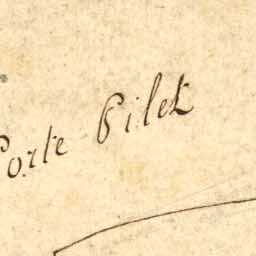 Porte Pilet